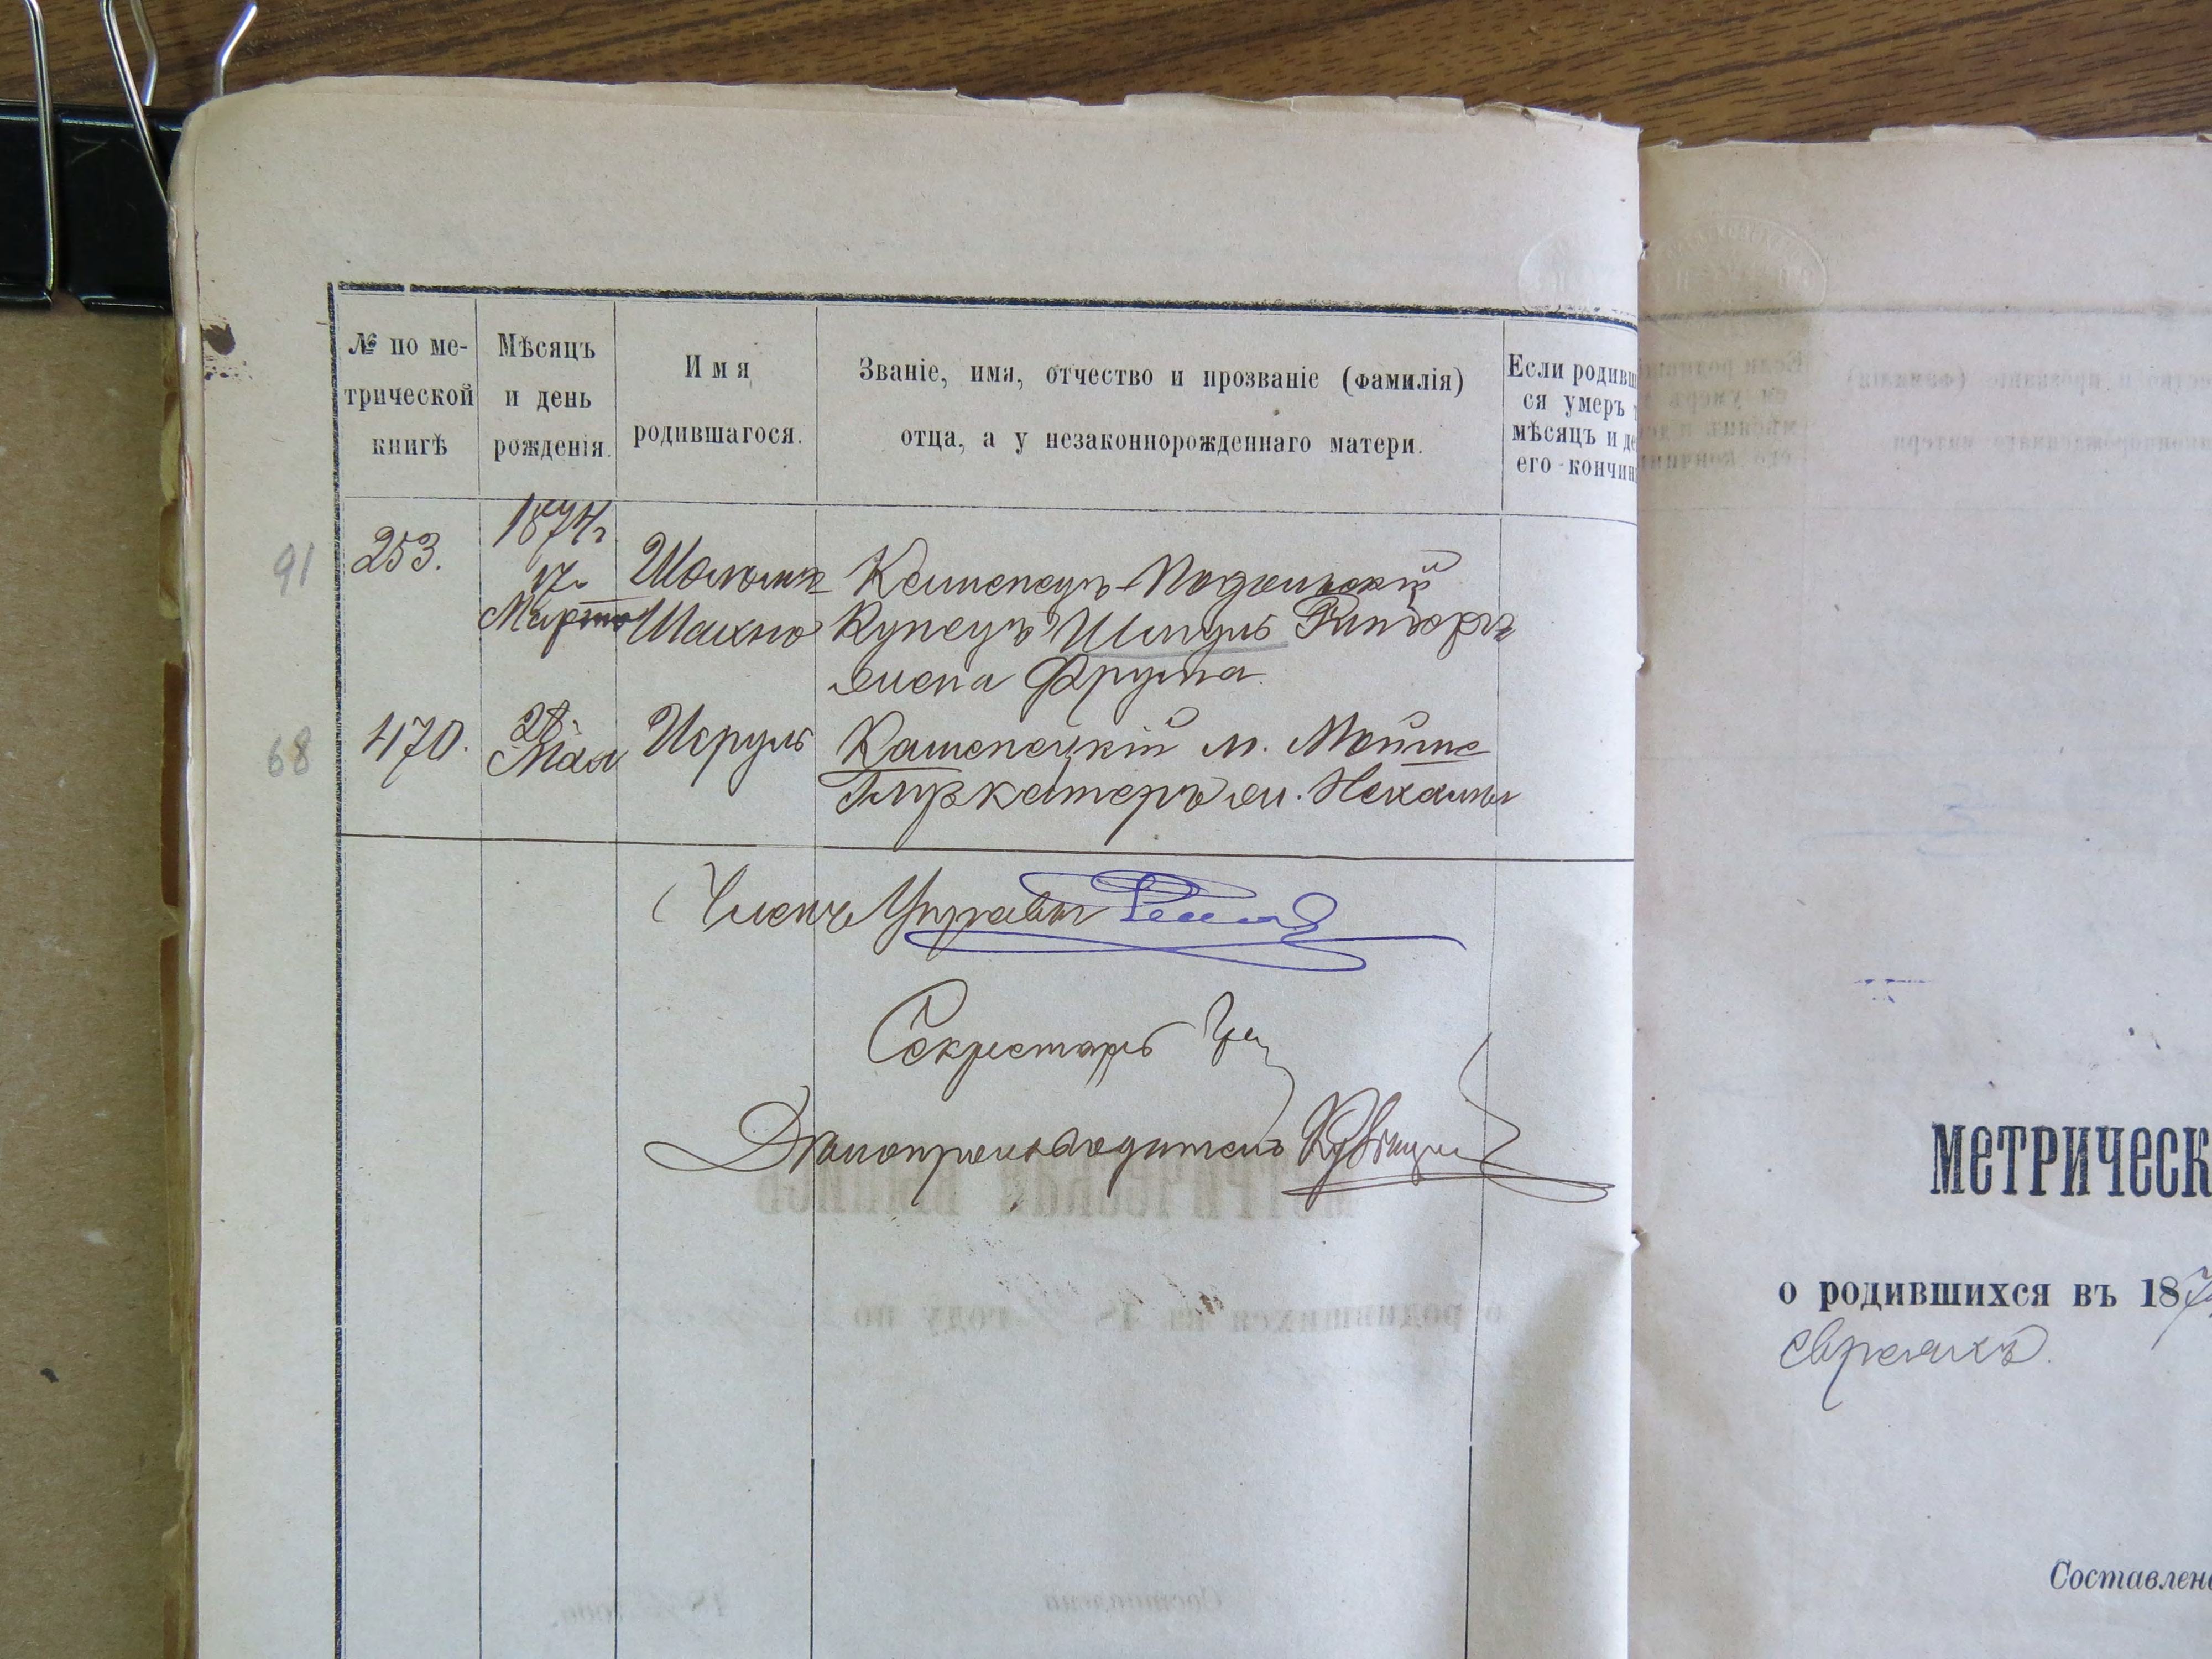 № по ме-
трической
книгѣ
Мѣсяцъ
и день
рожденія.
Имя
родившагося.
Званіе, имя, отчество и прозваніе (фамилія)
отца, а у незаконнорожденнаго матери.
Если родивш
ся умеръ
мѣсяцъ и де
его кончин
91
253.
1874 г
17
Марта
Шоломъ
Шахно
Каменецъ-Подольскій
Купецъ Шмуль
жена Фрума.
68
470.
28
Мая
Исруль
Каменецкій м. Мойше
жи. Нехамы
Членъ Управы
Секретарь
Дѣлопроизводитель
МЕТРИЧЕСК
о родившихся въ 187
евреяхъ.
Составлено